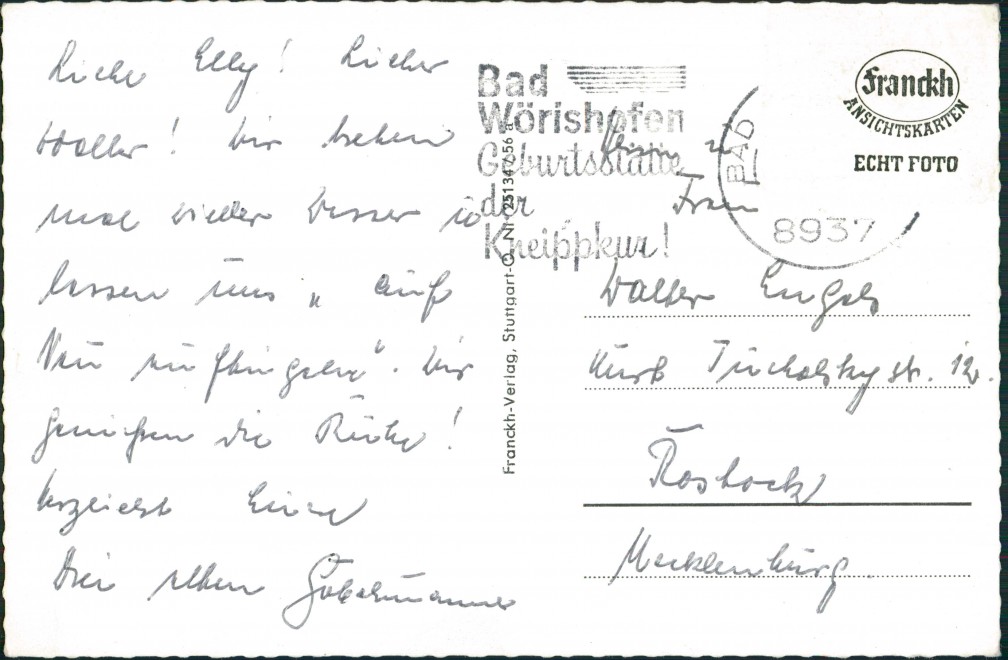 Liebe Elly! Lieber
Walter! Wir treten
mal wieder Wasser u
lassen uns "auf
Neu aufbügeln". Wir
genießen die Ruhe!
Herzlichst Eure
Drei alten
Bad
Wörishofen
Geburtsstätte
der
Kneippkur!
BAD
8937
Franckh
ANSICHTSKARTEN
ECHT FOTO
Franckh-Verlag, Stuttgart-O, Nr. 25134/56 a
Herrn u
Frau
Walter Engels
Kurt Tucholskystr. 12.
Rostock
Mecklenburg.